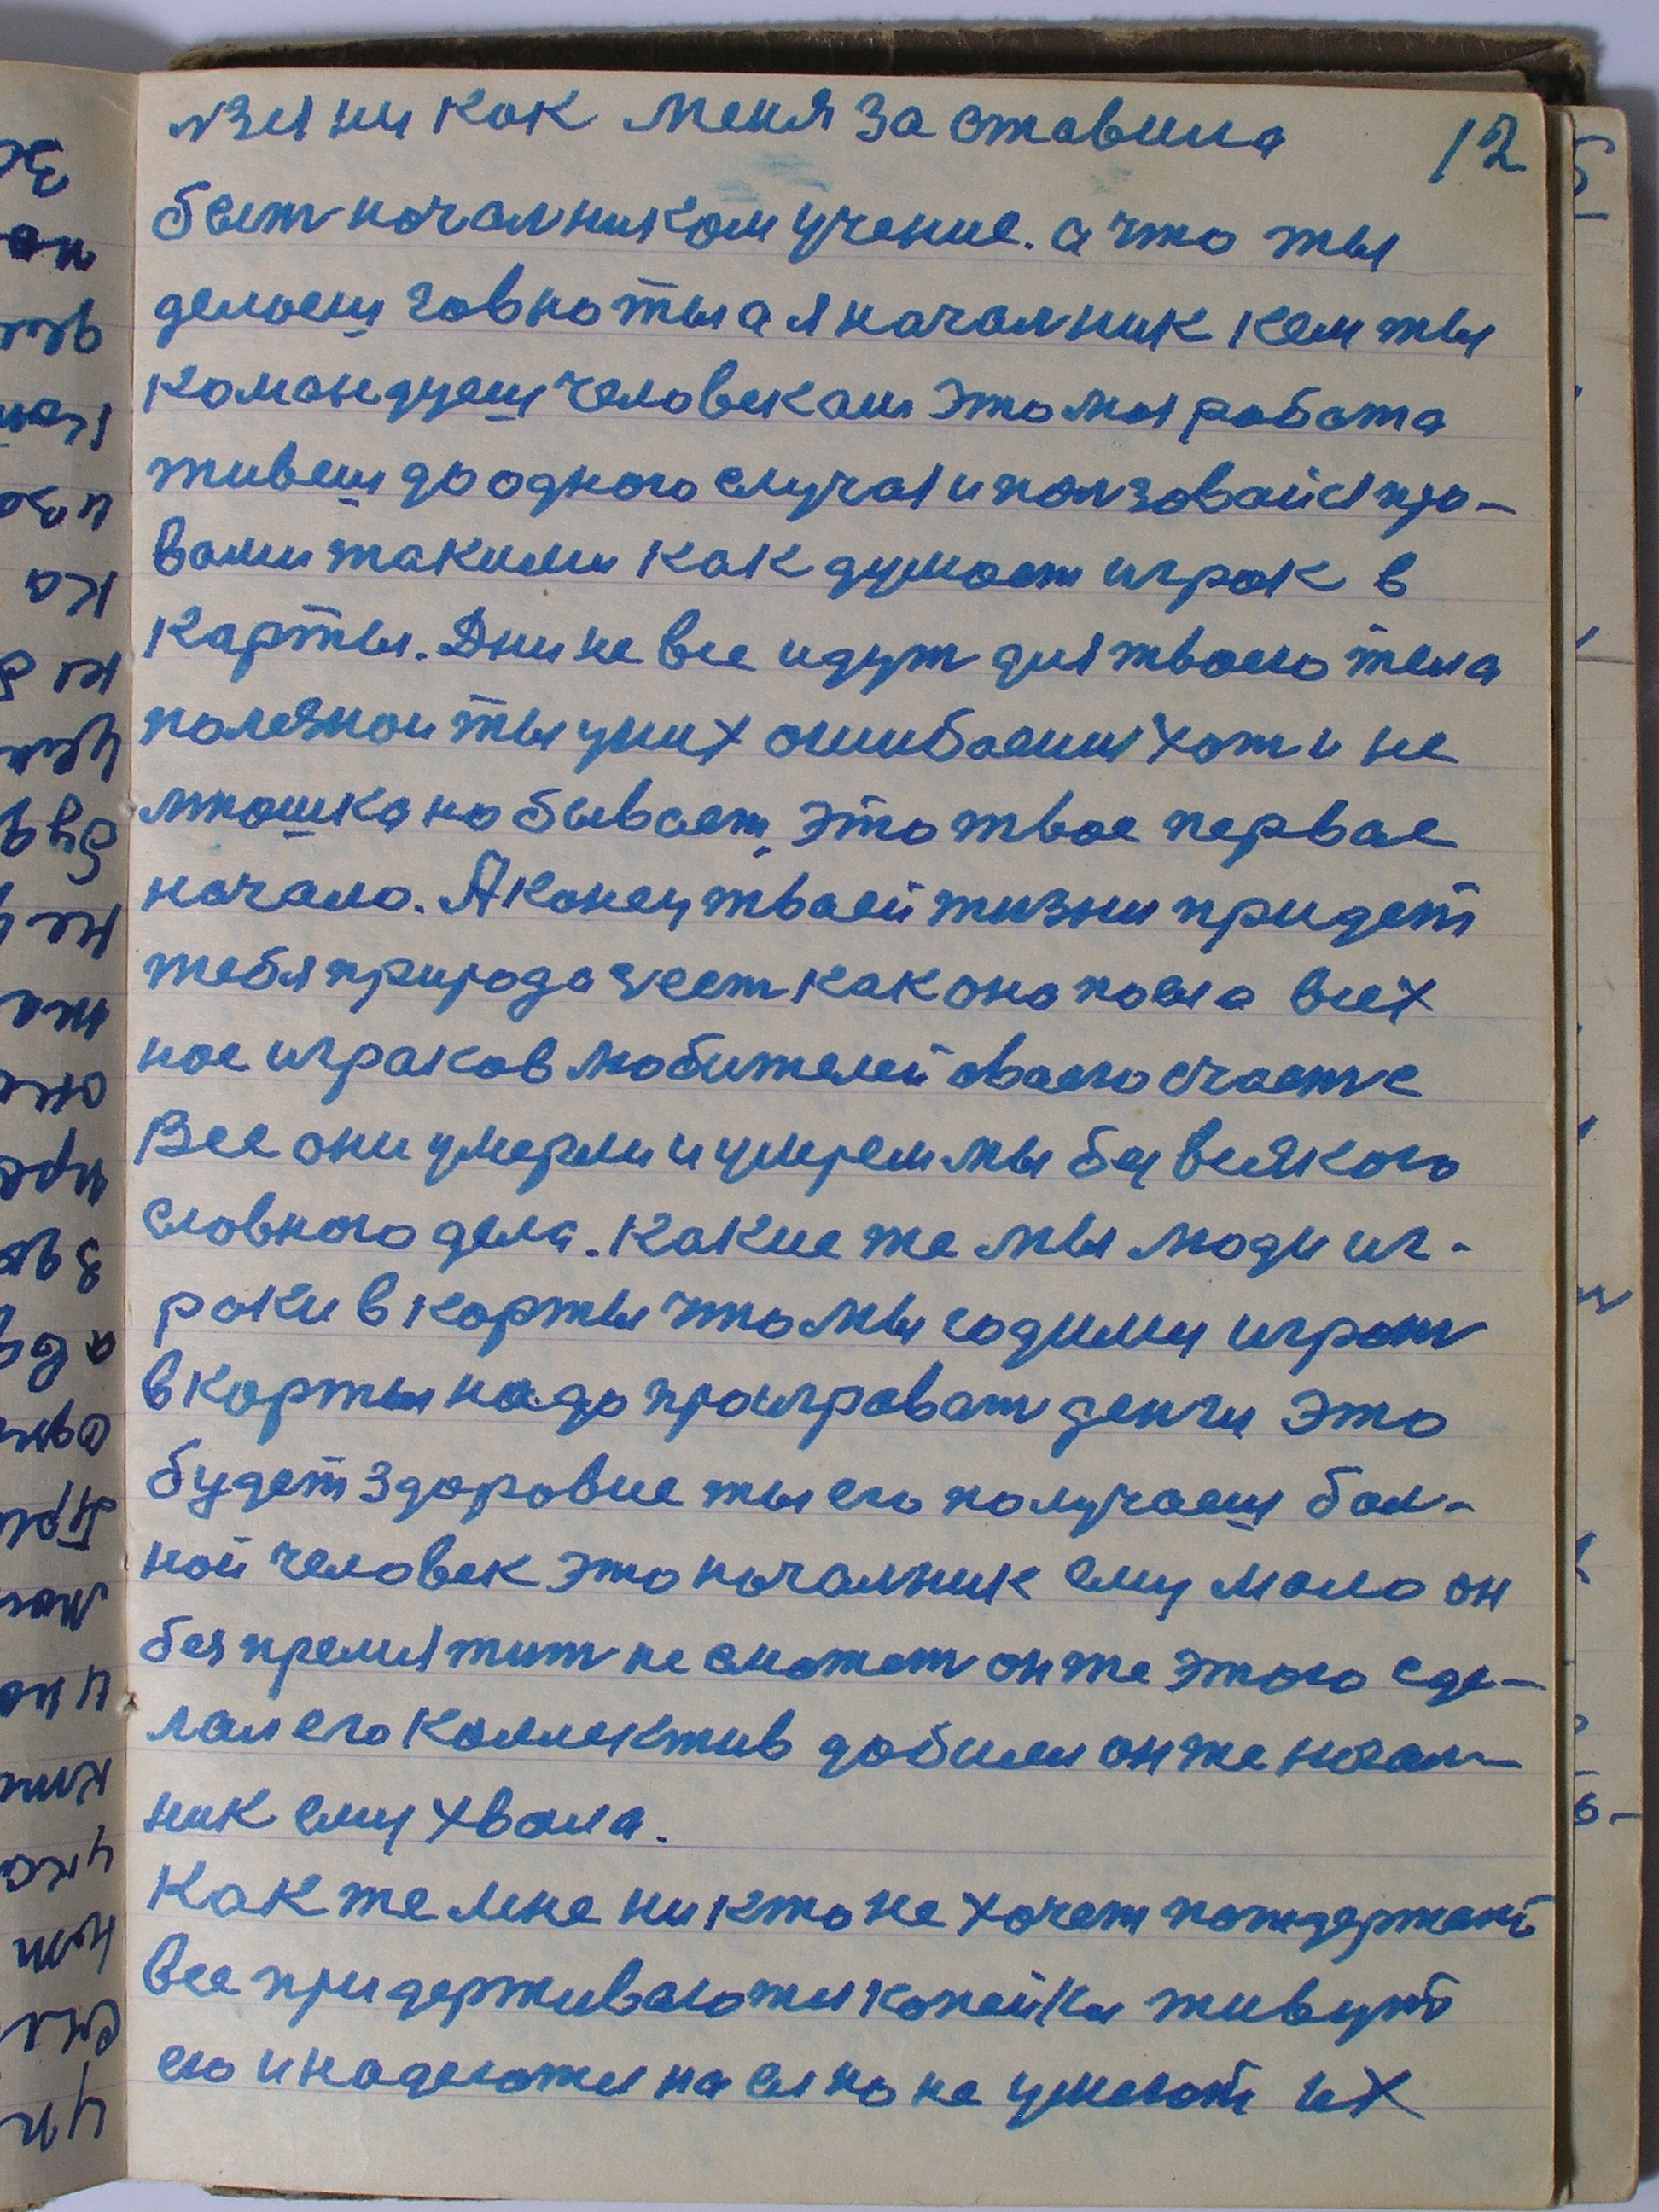 ля ни как меня заставила
12
быт началником учение. а что ты
делаеш говно ты а я началник кем ты
командуеш человекам это моя работа
живеш до одного случая и ползовайся пра-
вами такими как думает игрок в
карты. Дни не все идут для твоего тела
полезной ты у них ошибаеш хот и не
множка но бывает, это твое первае
начало. А конец твоей жизни придет
тебя природа сест как она поела всех
нас играков любителей сваего счасте
Все они умерли и умрем мы без всякого
словного дела. Какие же мы люди иг-
раки в карты что мы годими играт
в карты надо проигроват денги это
будет здоровие ты его получаеш бол-
ной человек это началник ему мало он
без премия жит не сможет он же этого сде-
лал его коллектив добили он же начал-
ник ему хвала.
Как же мне ни кто не хочет потдержат
все придерживаются копейки живут
ею и надеются на ея но не умеют их